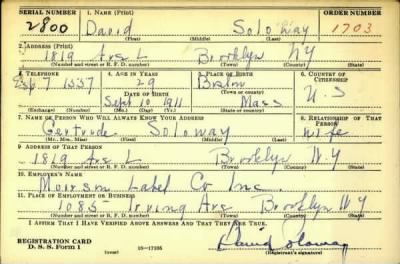 SERIAL NUMBER 1. NAME (Print) ORDER NUMBER
2800 David Soloway 1703
(First) (Middle) (Last)
2. ADDRESS (Print)
1819 Ave L Brooklyn NY
(Number and street or R. F. D. number) (Town) (County) (State)
3. TELEPHONE 4. AGE IN YEARS 5. PLACE OF BIRTH 6. COUNTRY OF CITIZENSHIP
Esp. 7 1557 29 Boston
DATE OF BIRTH (Town or county)
Sept 10 1911 Mass U.S
(Exchange) (Number) (Mo.) (Day) (Yr.) (State or country)
7. NAME OF PERSON WHO WILL ALWAYS KNOW YOUR ADDRESS 8. RELATIONSHIP OF THAT PERSON
Gertrude Soloway wife
(Mr., Mrs., Miss) (First) (Middle) (Last)
9. ADDRESS OF THAT PERSON
1819 Ave L Brooklyn N.Y
(Number and street or R. F. D. number) (Town) (County) (State)
10. EMPLOYER'S NAME
Label Co Inc.
11. PLACE OF EMPLOYMENT OR BUSINESS
1085 Irving Ave Brooklyn NY
(Number and street or R. F. D. number) (Town) (County) (State)
I AFFIRM THAT I HAVE VERIFIED ABOVE ANSWERS AND THAT THEY ARE TRUE.
REGISTRATION CARD
D. S. S. Form 1 16-17105 David Soloway
(Registrant's signature)